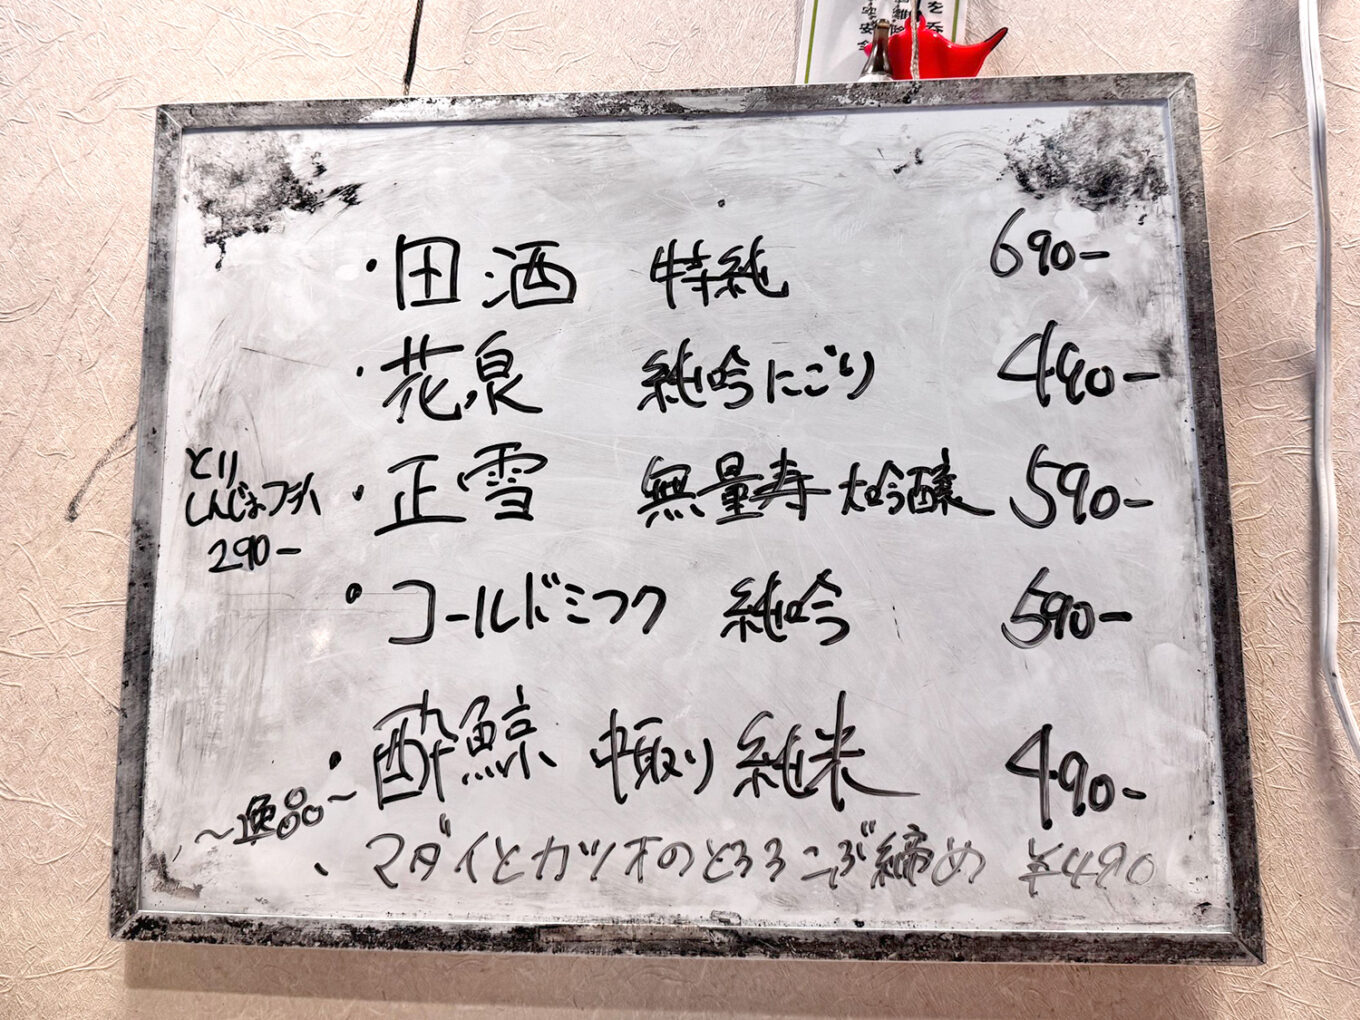 ・田酒 特純 690-
・花泉 純吟にごり 490-
・正雪 無量寿 大吟醸 590-
とり
290-
・コールドミフク 純吟 590-
・酔鯨 中取り 純米 490-
〜逸品〜
、マダイとカツオのとろろこぶ締め ¥490